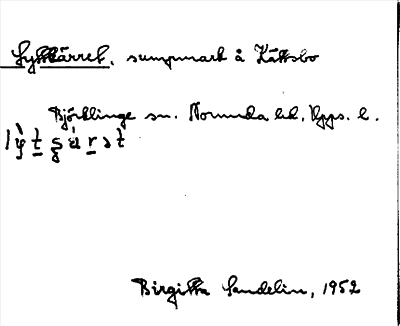 Lyttkärret, sumpmark å Kättsbo
Björklinge sn. Norunda hd, Upps. l.
Birgitta Sandelin, 1952